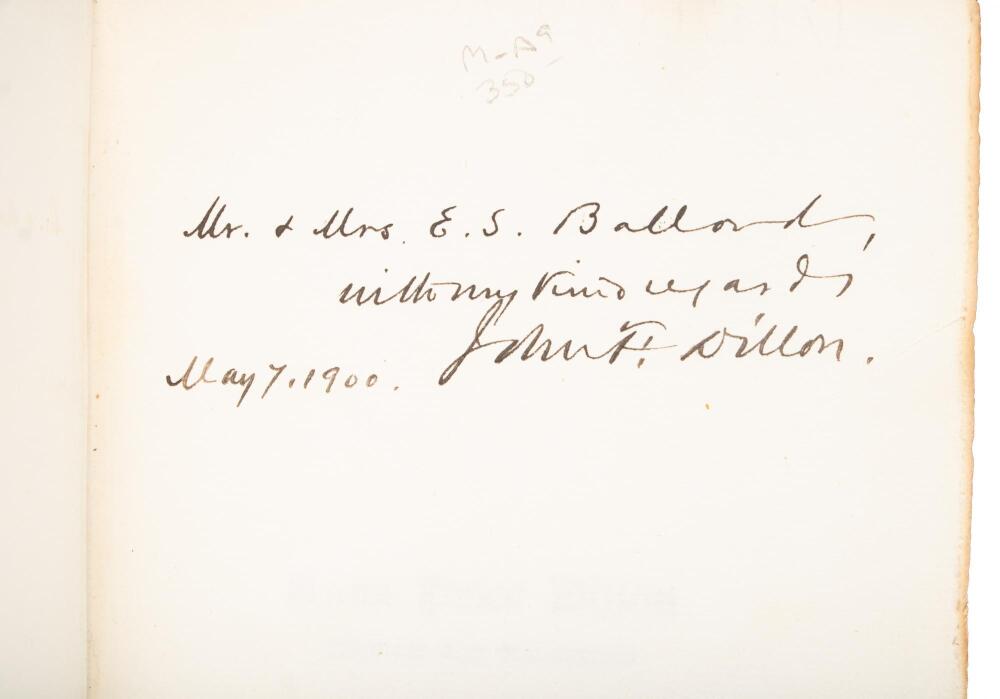 M-A9
350
Mr. & Mrs. E. S. Ballard,
with my kind regards
John F. Dillon.
May 7, 1900.